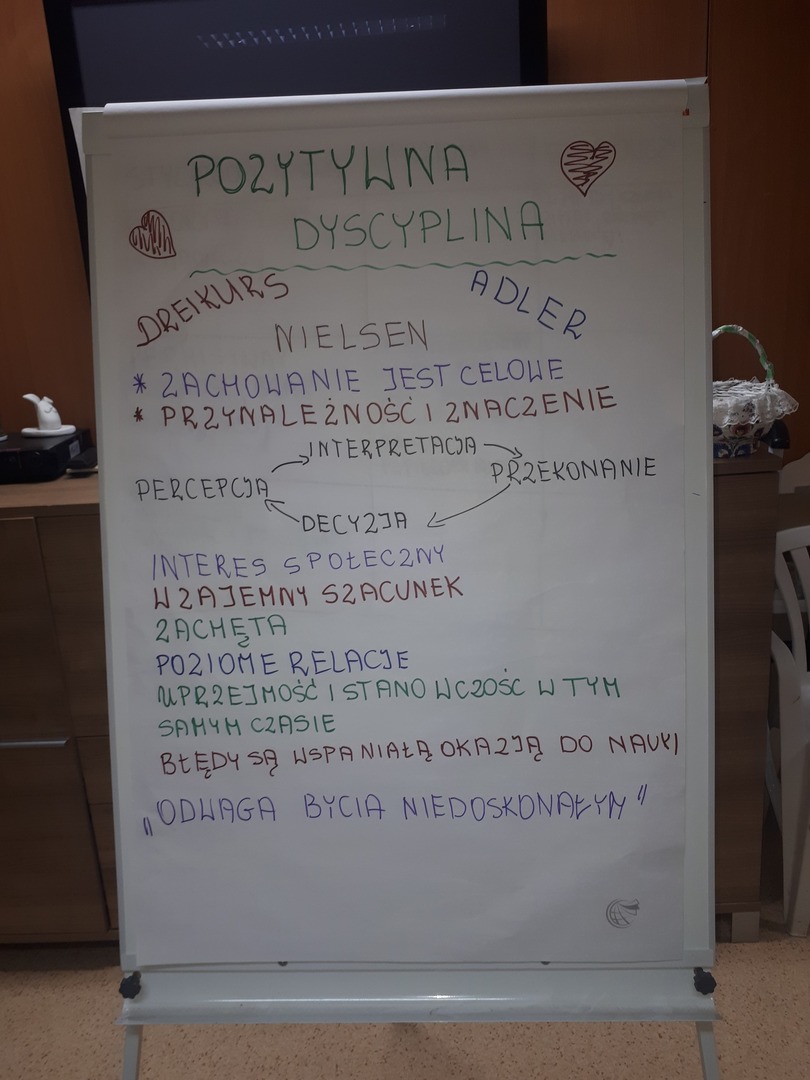 POZYTYWNA
DYSCYPLINA
DREIKURS
ADLER
NIELSEN
* ZACHOWANIE JEST CELOWE
* PRZYNALEŻNOŚĆ I ZNACZENIE
INTERPRETACJA
PERCEPCJA
PRZEKONANIE
DECYZJA
INTERES SPOŁECZNY
WZAJEMNY SZACUNEK
ZACHĘTA
POZIOME RELACJE
UPRZEJMOŚĆ I STANOWCZOŚĆ W TYM
SAMYM CZASIE
BŁĘDY SĄ WSPANIAŁĄ OKAZJĄ DO NAUKI
„ODWAGA BYCIA NIEDOSKONAŁYM"